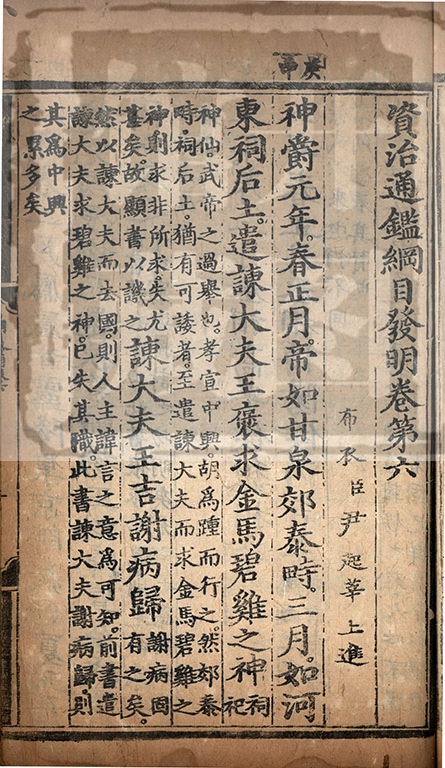 庚申
資治通鑑綱目發明卷第六
布衣臣尹起莘上進
神爵元年。春正月。帝如甘泉郊泰畤。三月。如河
東祠后土。遣諫大夫王褒求金馬碧雞之神祠祀
神仙。武帝之過舉也。孝宣中興。胡爲踵而行之。然郊泰
時。祠后土。猶有可諉者。至遣諫大夫而求金馬碧雞之
神則求非所求矣。尤
甚矣。故顯書以譏之
諫大夫王吉謝病歸
謝病固
有之矣。
然以諫大夫而去國。則人主諱言之意爲可知。前書遣
諫大夫求碧雞之神。已失其職。此書諫大夫謝病歸。則
其爲中興
之累多矣